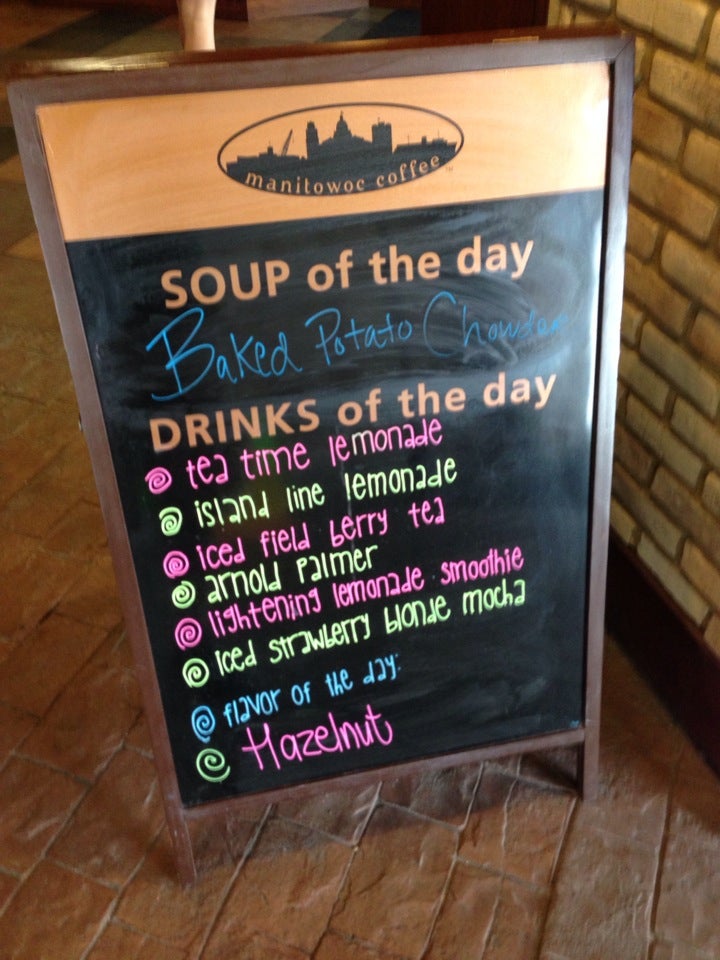 manitowoc coffee™
SOUP of the day
Baked Potato Chowder
DRINKS of the day
tea time lemonade
island line lemonade
iced field berry tea
arnold palmer
lightening lemonade smoothie
iced strawberry blonde mocha
flavor of the day:
Hazelnut